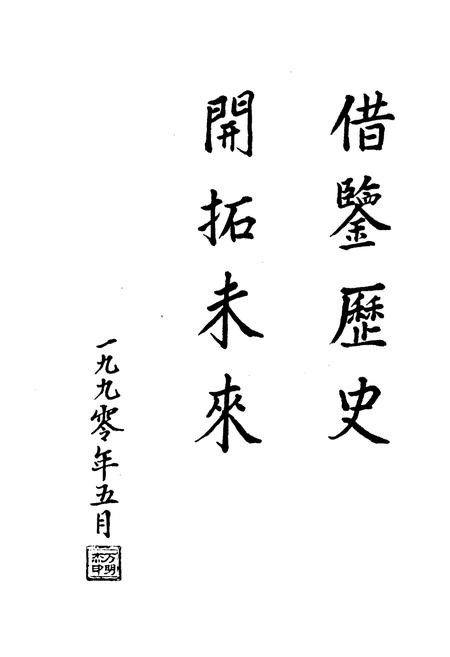 借鑒歷史
開拓未來
一九九零年五月